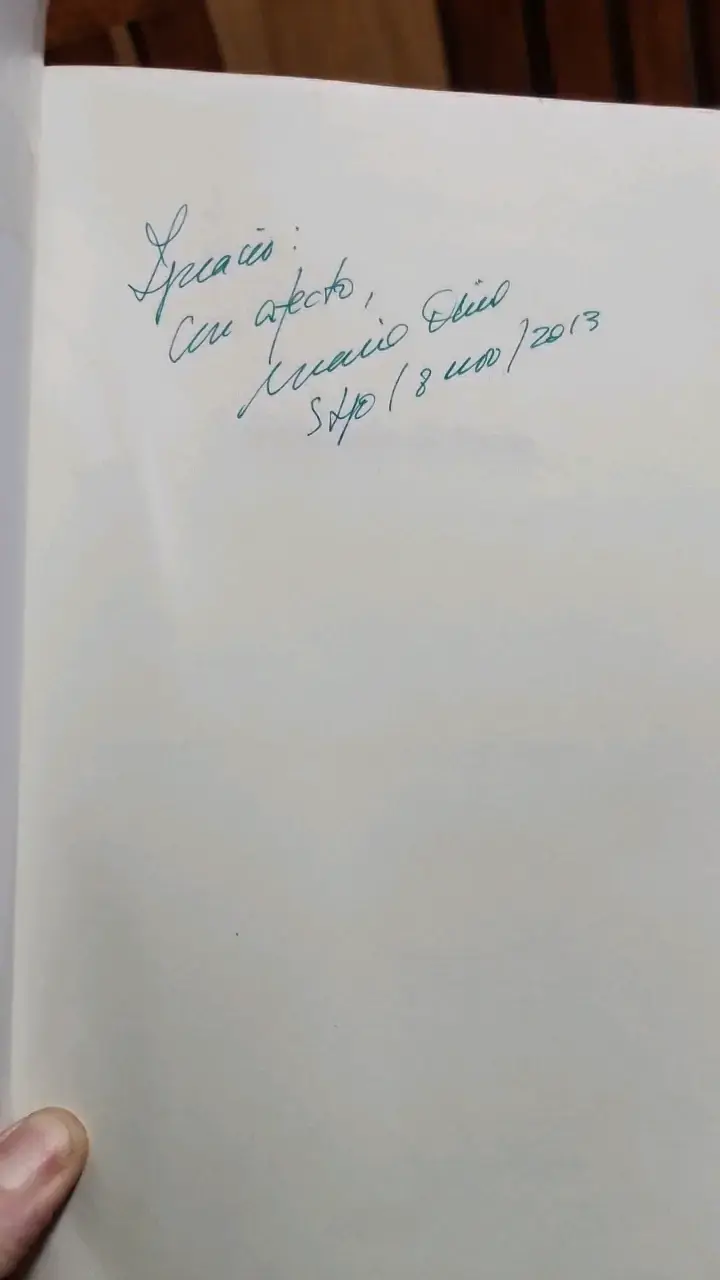 Ignacio:
Con afecto,
Mario
Stgo / 8 nov / 2013